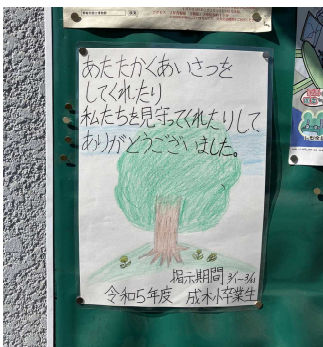 あたたかくあいさつを
してくれたり
私たちを見守ってくれたりして
ありがとうございました。
掲示期間 3/1~3/31
令和5年度 成木小卒業生